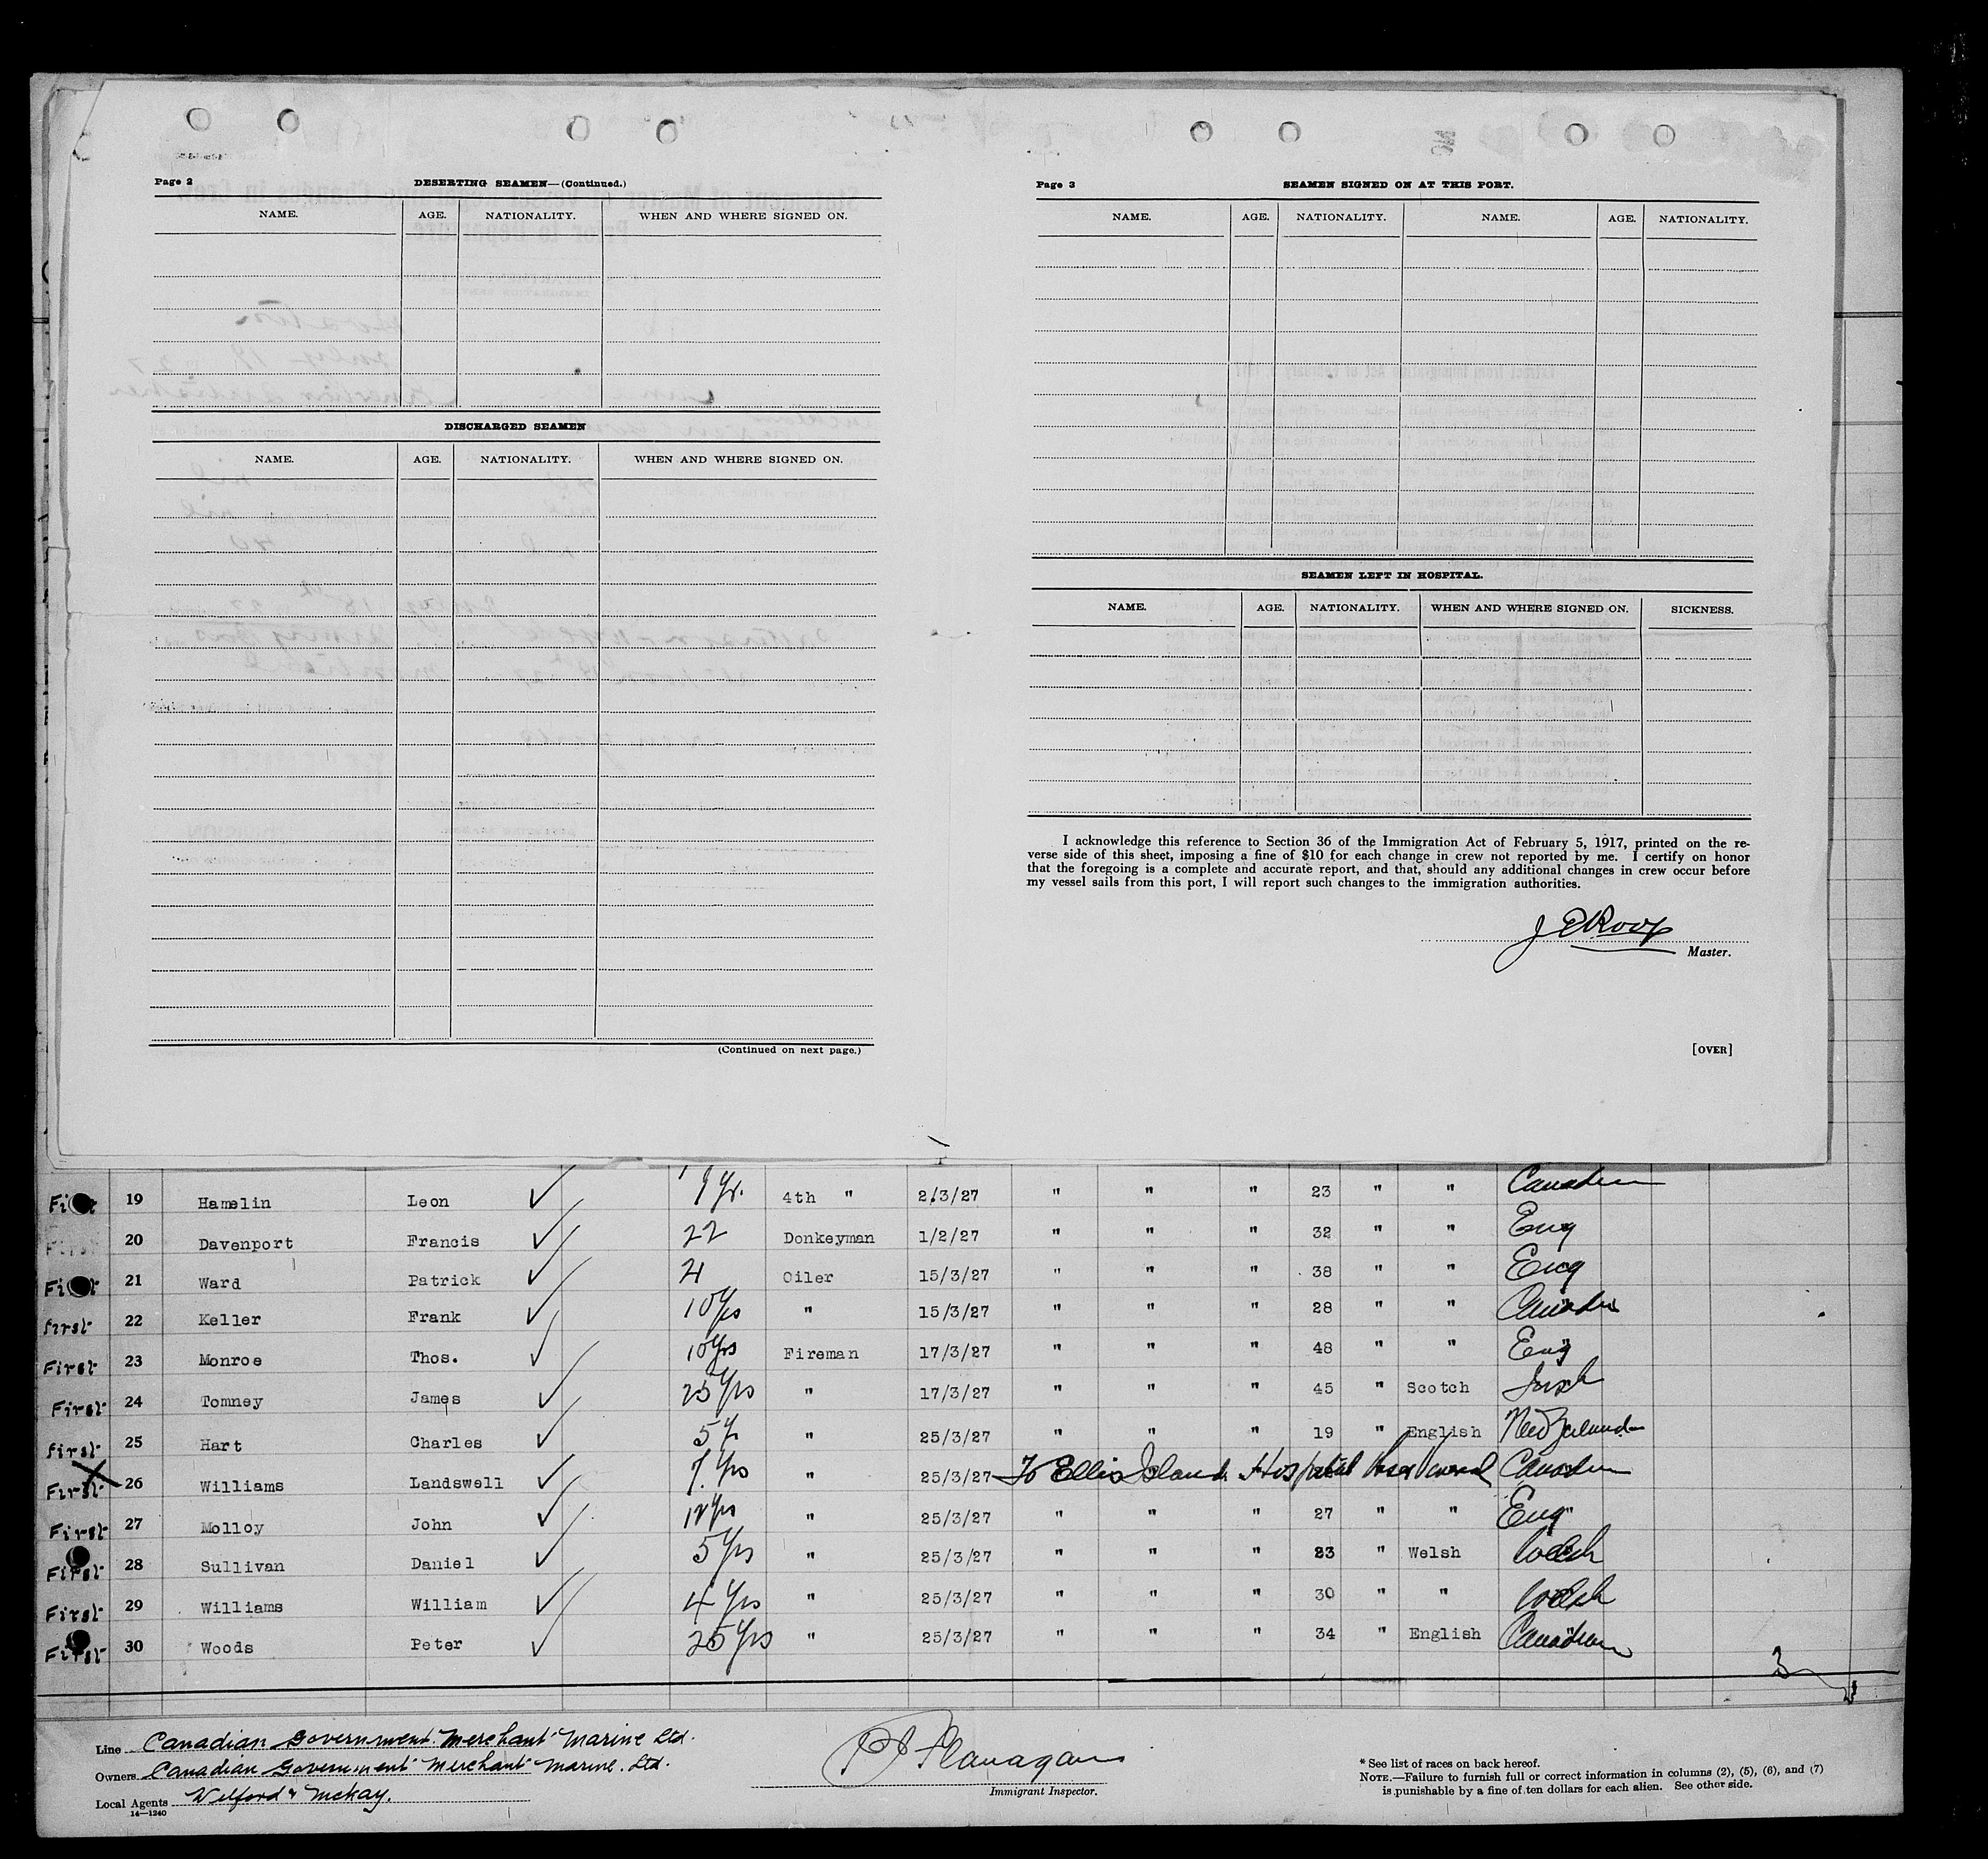 Page 2
DESERTING SEAMEN—(Continued.)
NAME. AGE. NATIONALITY. WHEN AND WHERE SIGNED ON.
DISCHARGED SEAMEN
NAME. AGE. NATIONALITY. WHEN AND WHERE SIGNED ON.
(Continued on next page.)
Page 3
SEAMEN SIGNED ON AT THIS PORT.
NAME. AGE. NATIONALITY. NAME. AGE. NATIONALITY.
SEAMEN LEFT IN HOSPITAL.
NAME. AGE. NATIONALITY. WHEN AND WHERE SIGNED ON. SICKNESS.
I acknowledge this reference to Section 36 of the Immigration Act of February 5, 1917, printed on the re-
verse side of this sheet, imposing a fine of $10 for each change in crew not reported by me. I certify on honor
that the foregoing is a complete and accurate report, and that, should any additional changes in crew occur before
my vessel sails from this port, I will report such changes to the immigration authorities.
J E Roop
Master.
[OVER]
First 19 Hamelin Leon 1 yr. 4th " 2/3/27 " " " 23 " " Canadian
First 20 Davenport Francis 22 Donkeyman 1/2/27 " " " 32 " " Eng
First 21 Ward Patrick 21 Oiler 15/3/27 " " " 38 " " Eng
First 22 Keller Frank 10 yrs " 15/3/27 " " " 28 " " Canadian
First 23 Monroe Thos. 10 yrs Fireman 17/3/27 " " " 48 " " Eng
First 24 Tomney James 25 yrs " 17/3/27 " " " 45 " Scotch Irish
First 25 Hart Charles 5 y " 25/3/27 " " " 19 " English New Zealand
First 26 Williams Landswell 7 yrs " 25/3/27 To Ellis Island Hospital Canadian
First 27 Molloy John 12 yrs " 25/3/27 " " " 27 " " Eng
First 28 Sullivan Daniel 5 yrs " 25/3/27 " " " 23 " Welsh Welsh
First 29 Williams William 4 yrs " 25/3/27 " " " 30 " " Welsh
First 30 Woods Peter 25 yrs " 25/3/27 " " " 34 " English Canadian
3
Line Canadian Government Merchant Marine Ltd.
Owners Canadian Government Merchant Marine. Ltd.
Local Agents Welford & McKay.
14—1240
P J Flanagan
Immigrant Inspector.
* See list of races on back hereof.
NOTE.—Failure to furnish full or correct information in columns (2), (5), (6), and (7)
is punishable by a fine of ten dollars for each alien. See other side.